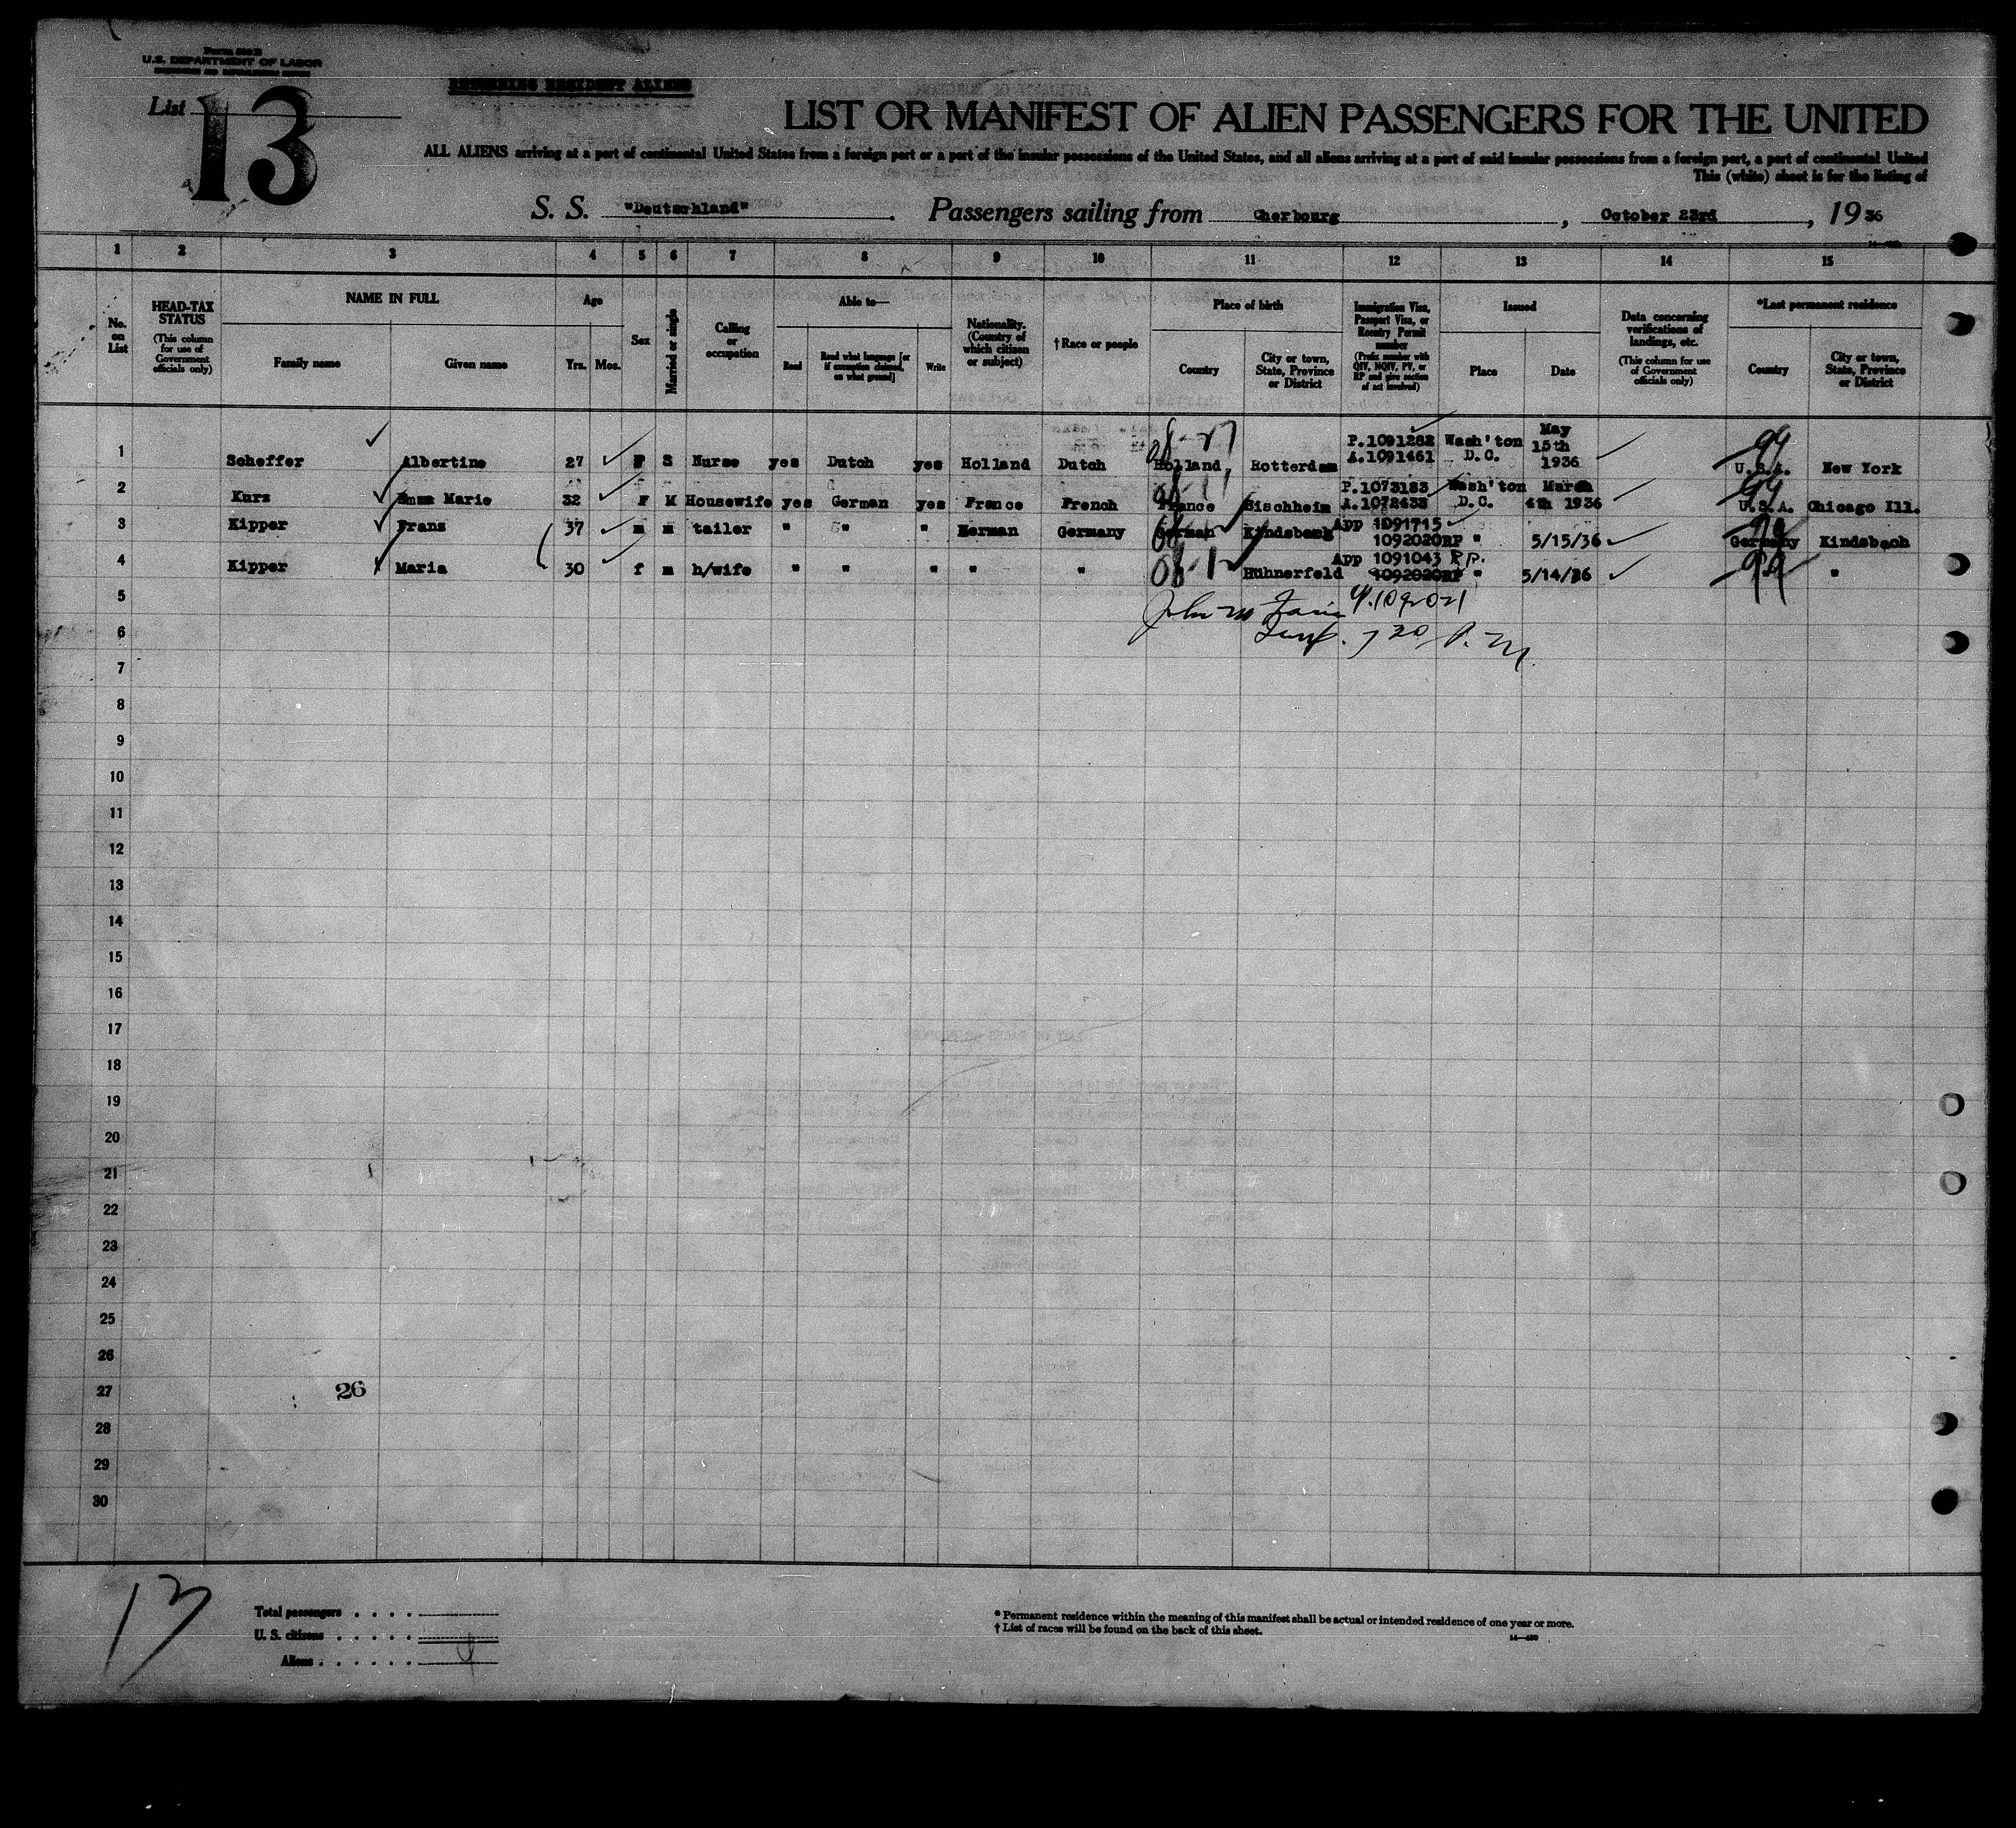 Form 500 B
U.S. DEPARTMENT OF LABOR
IMMIGRATION AND NATURALIZATION SERVICE
List 13
RETURNING RESIDENT ALIENS
LIST OR MANIFEST OF ALIEN PASSENGERS FOR THE UNITED
ALL ALIENS arriving at a port of continental United States from a foreign port or a port of the insular possessions of the United States, and all aliens arriving at a port of said insular possessions from a foreign port, a port of continental United
This (white) sheet is for the listing of
S. S. "Deutschland". Passengers sailing from Cherbourg, October 23rd, 1936
1 2 3 4 5 6 7 8 9 10 11 12 13 14 15
No. on List
HEAD-TAX STATUS (This column for use of Government officials only)
NAME IN FULL
Family name
Given name
Age
Yrs. Mos.
Sex
Married or single
Calling or occupation
Able to—
Read
Read what language [or if exemption claimed, on what ground]
Write
Nationality. (Country of which citizen or subject)
†Race or people
Place of birth
Country
City or town, State, Province or District
Immigration Visa, Passport Visa, or Reentry Permit number (Prefix number with QIV, NQIV, PV, or RP and give section of act involved)
Issued
Place
Date
Data concerning verifications of landings, etc. (This column for use of Government officials only)
*Last permanent residence
Country
City or town, State, Province or District
1 Scheffer Albertine 27 F S Nurse yes Dutch yes Holland Dutch Holland Rotterdam P.1091282 A.1091461 Wash'ton D.C. May 15th 1936 99 U.S.A. New York
2 Kurz Emma Marie 32 F M Housewife yes German yes France French France Bischheim P.1073183 A.1072438 Wash'ton D.C. March 4th 1936 99 U.S.A. Chicago Ill.
3 Kipper Franz 37 m m tailer " " " German Germany German Kindsbach App 1091715 1092020RP " 5/15/36 99 Germany Kindsbach
4 Kipper Maria 30 f m h/wife " " " " " Hühnerfeld App 1091043 R.P. 1092020RP " 5/14/36 99 " "
5
6
7
8
9
10
11
12
13
14
15
16
17
18
19
20
21
22
23
24
25
26
27 26
28
29
30
13
Total passengers . . . .
U. S. citizens . . . . .
Aliens . . . . . . 4
* Permanent residence within the meaning of this manifest shall be actual or intended residence of one year or more.
† List of races will be found on the back of this sheet.
14—430